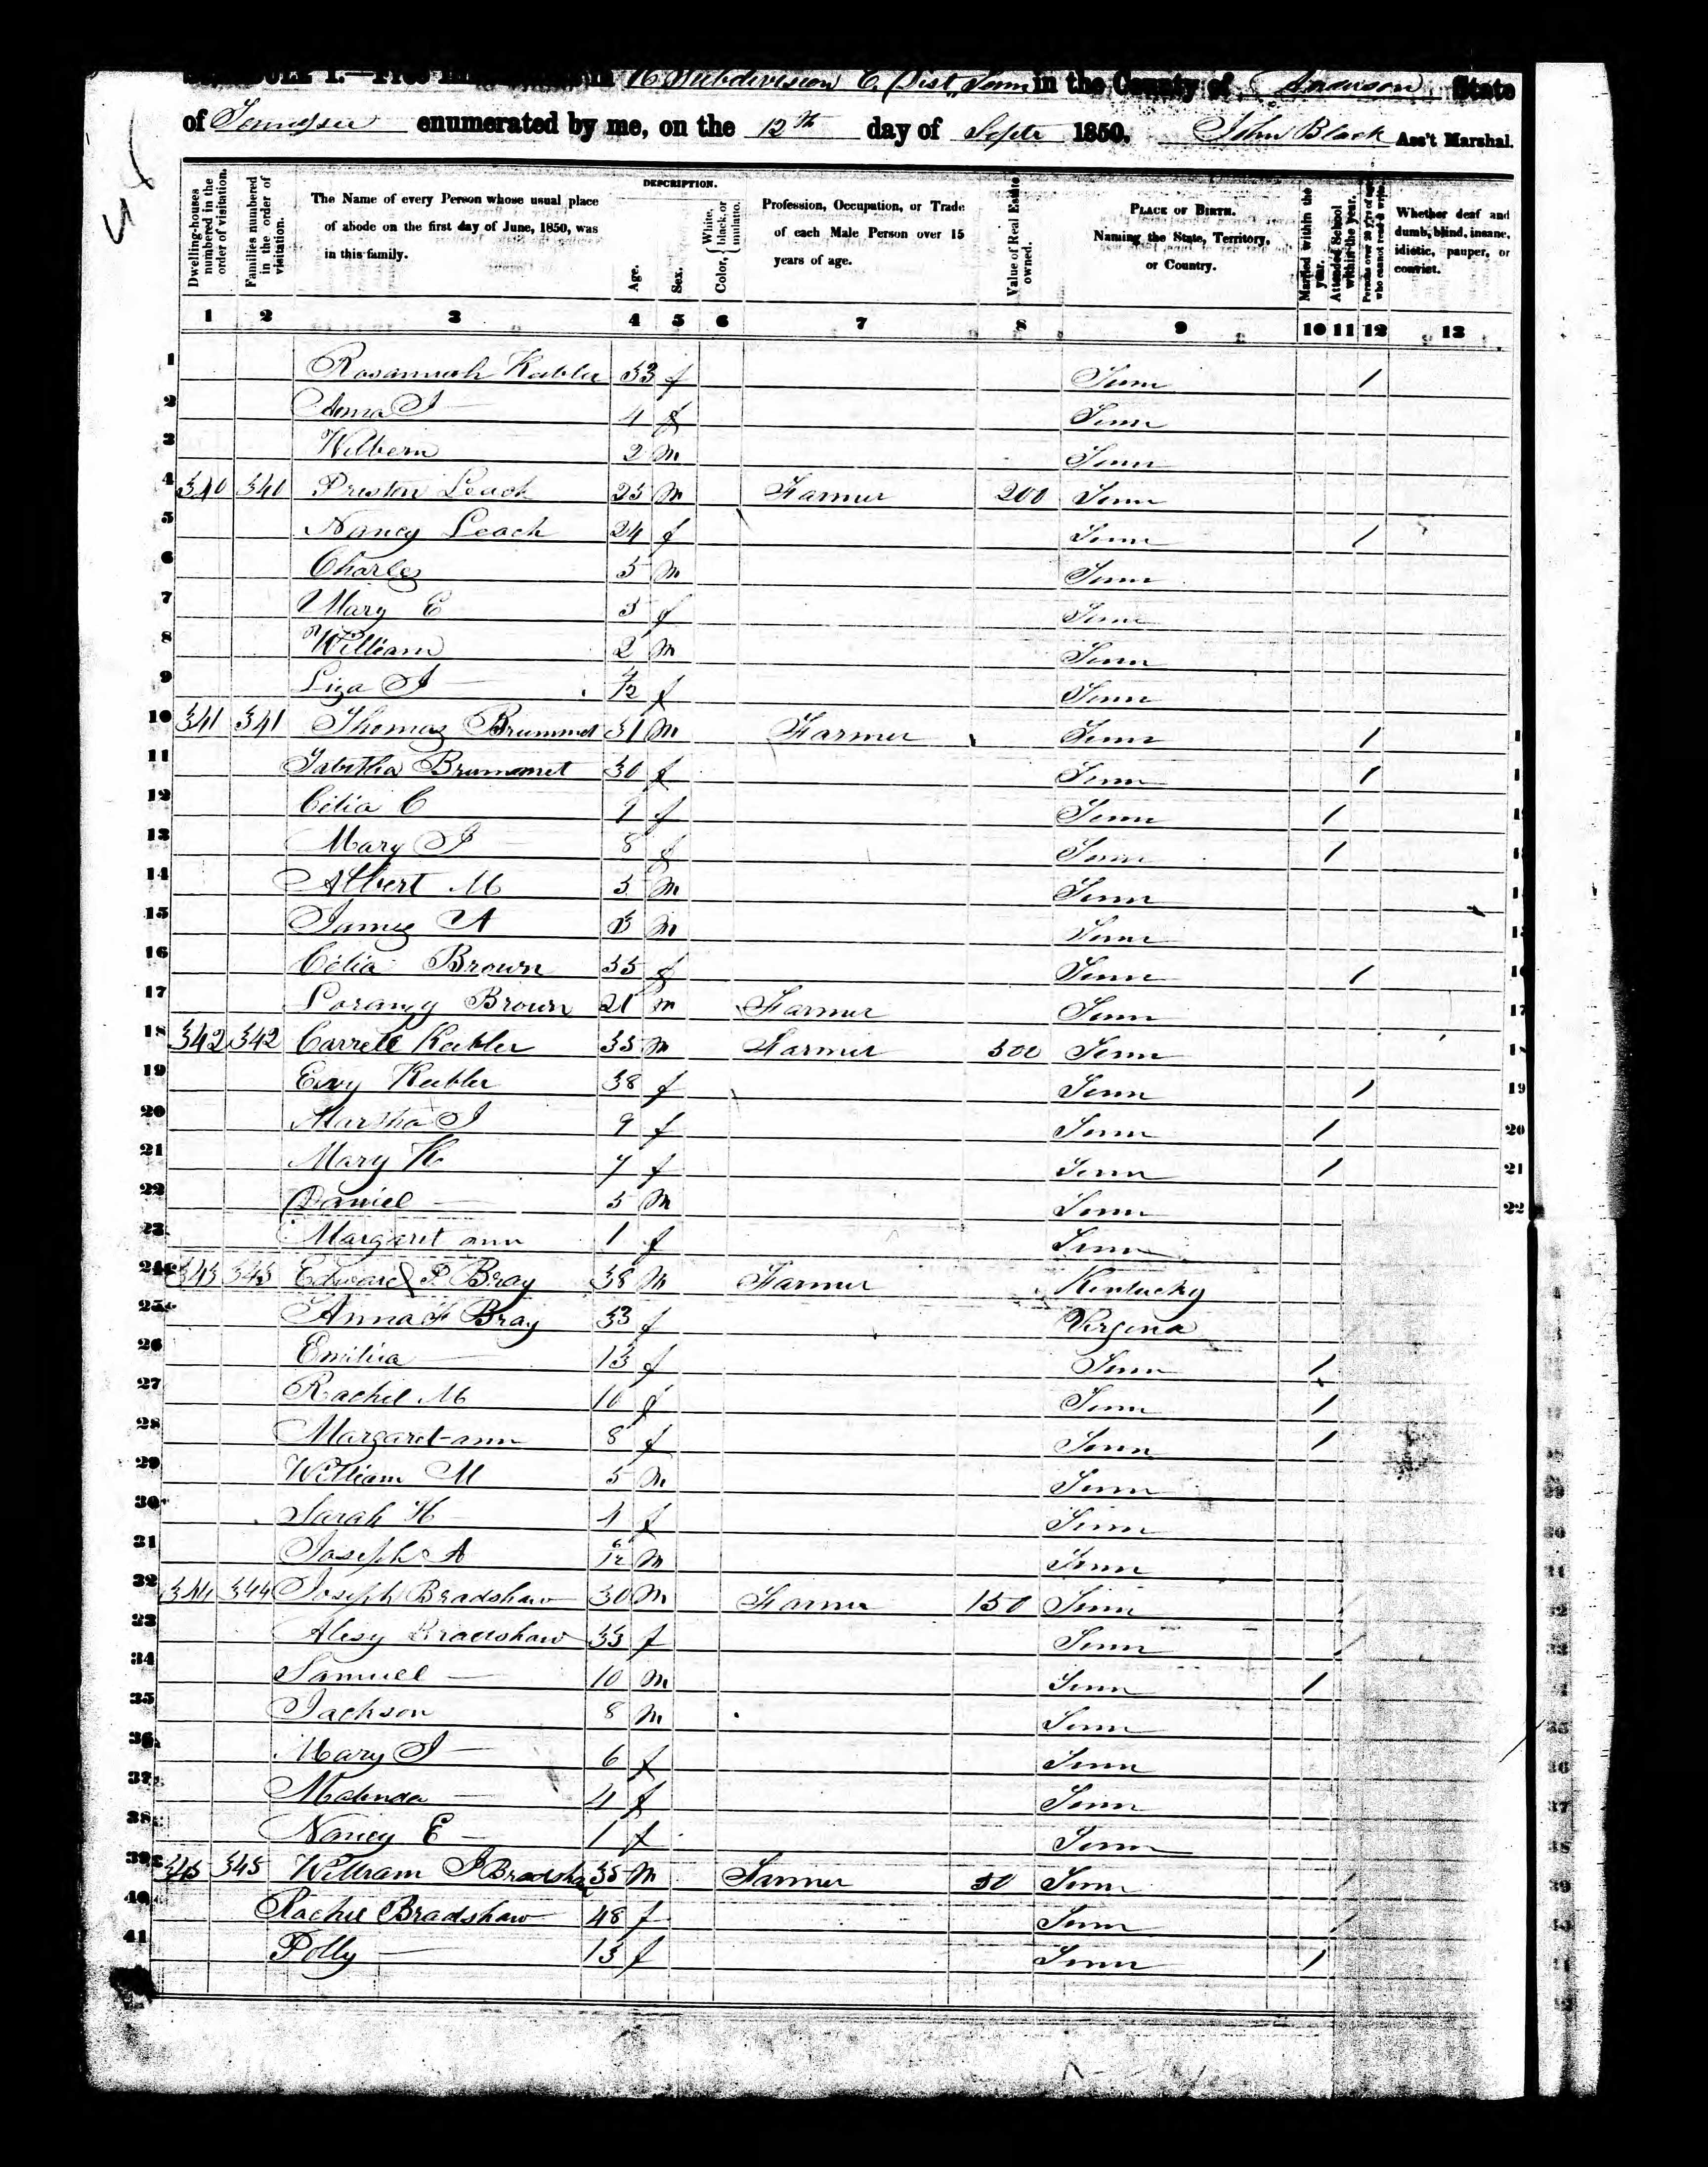 SCHEDULE I.—Free Inhabitants in 16 Subdivision E. Dist Tenn in the County of Anderson State
of Tennessee enumerated by me, on the 12th day of Septr 1850. John Black Ass't Marshal.
Dwelling-houses numbered in the order of visitation.
Families numbered in the order of visitation.
The Name of every Person whose usual place of abode on the first day of June, 1850, was in this family.
DESCRIPTION.
Age.
Sex.
Color, { White, black, or mulatto.
Profession, Occupation, or Trade of each Male Person over 15 years of age.
Value of Real Estate owned.
PLACE OF BIRTH. Naming the State, Territory, or Country.
Married within the year.
Attended School within the year.
Persons over 20 y'rs of age who cannot read & write.
Whether deaf and dumb, blind, insane, idiotic, pauper, or convict.
1 2 3 4 5 6 7 8 9 10 11 12 13
1 Rosannah Keebler 33 f Tenn /
2 Anna J 4 f Tenn
3 Wilbern 2 m Tenn
4 340 340 Preston Leach 25 m Farmer 200 Tenn
5 Nancy Leach 24 f Tenn /
6 Charles 5 m Tenn
7 Mary E 3 f Tenn
8 William 2 m Tenn
9 Liza J /12 f Tenn
10 341 341 Thomas Brummet 31 m Farmer Tenn /
11 Tabitha Brummet 30 f Tenn /
12 Celia C 9 f Tenn /
13 Mary J 8 f Tenn /
14 Albert M 5 m Tenn
15 James A 3 m Tenn
16 Celia Brown 55 f Tenn /
17 Loranzy Brown 21 m Farmer Tenn
18 342 342 Carrell Keebler 35 m Farmer 500 Tenn
19 Keebler 38 f Tenn /
20 Marsha J 9 f Tenn /
21 Mary K 7 f Tenn /
22 Daniel 5 m Tenn
23 Margaret ann 1 f Tenn
24 343 343 Edward P Bray 38 m Farmer Kentucky
25 Anna F Bray 33 f Virgina
26 Emilia 13 f Tenn /
27 Rachel M 10 f Tenn /
28 Margaret ann 8 f Tenn /
29 William M 5 m Tenn
30 Sarah H 4 f Tenn
31 Joseph A 6/12 m Tenn
32 344 344 Joseph Bradshaw 30 m Farmer 150 Tenn
33 Alesy Bradshaw 33 f Tenn /
34 Samuel 10 m Tenn /
35 Jackson 8 m Tenn
36 Mary J 6 f Tenn
37 Malinda 4 f Tenn
38 Nancy E 1 f Tenn
39 345 345 William J Bradshaw 35 m Farmer 50 Tenn /
40 Rachel Bradshaw 48 f Tenn /
41 Polly 13 f Tenn /